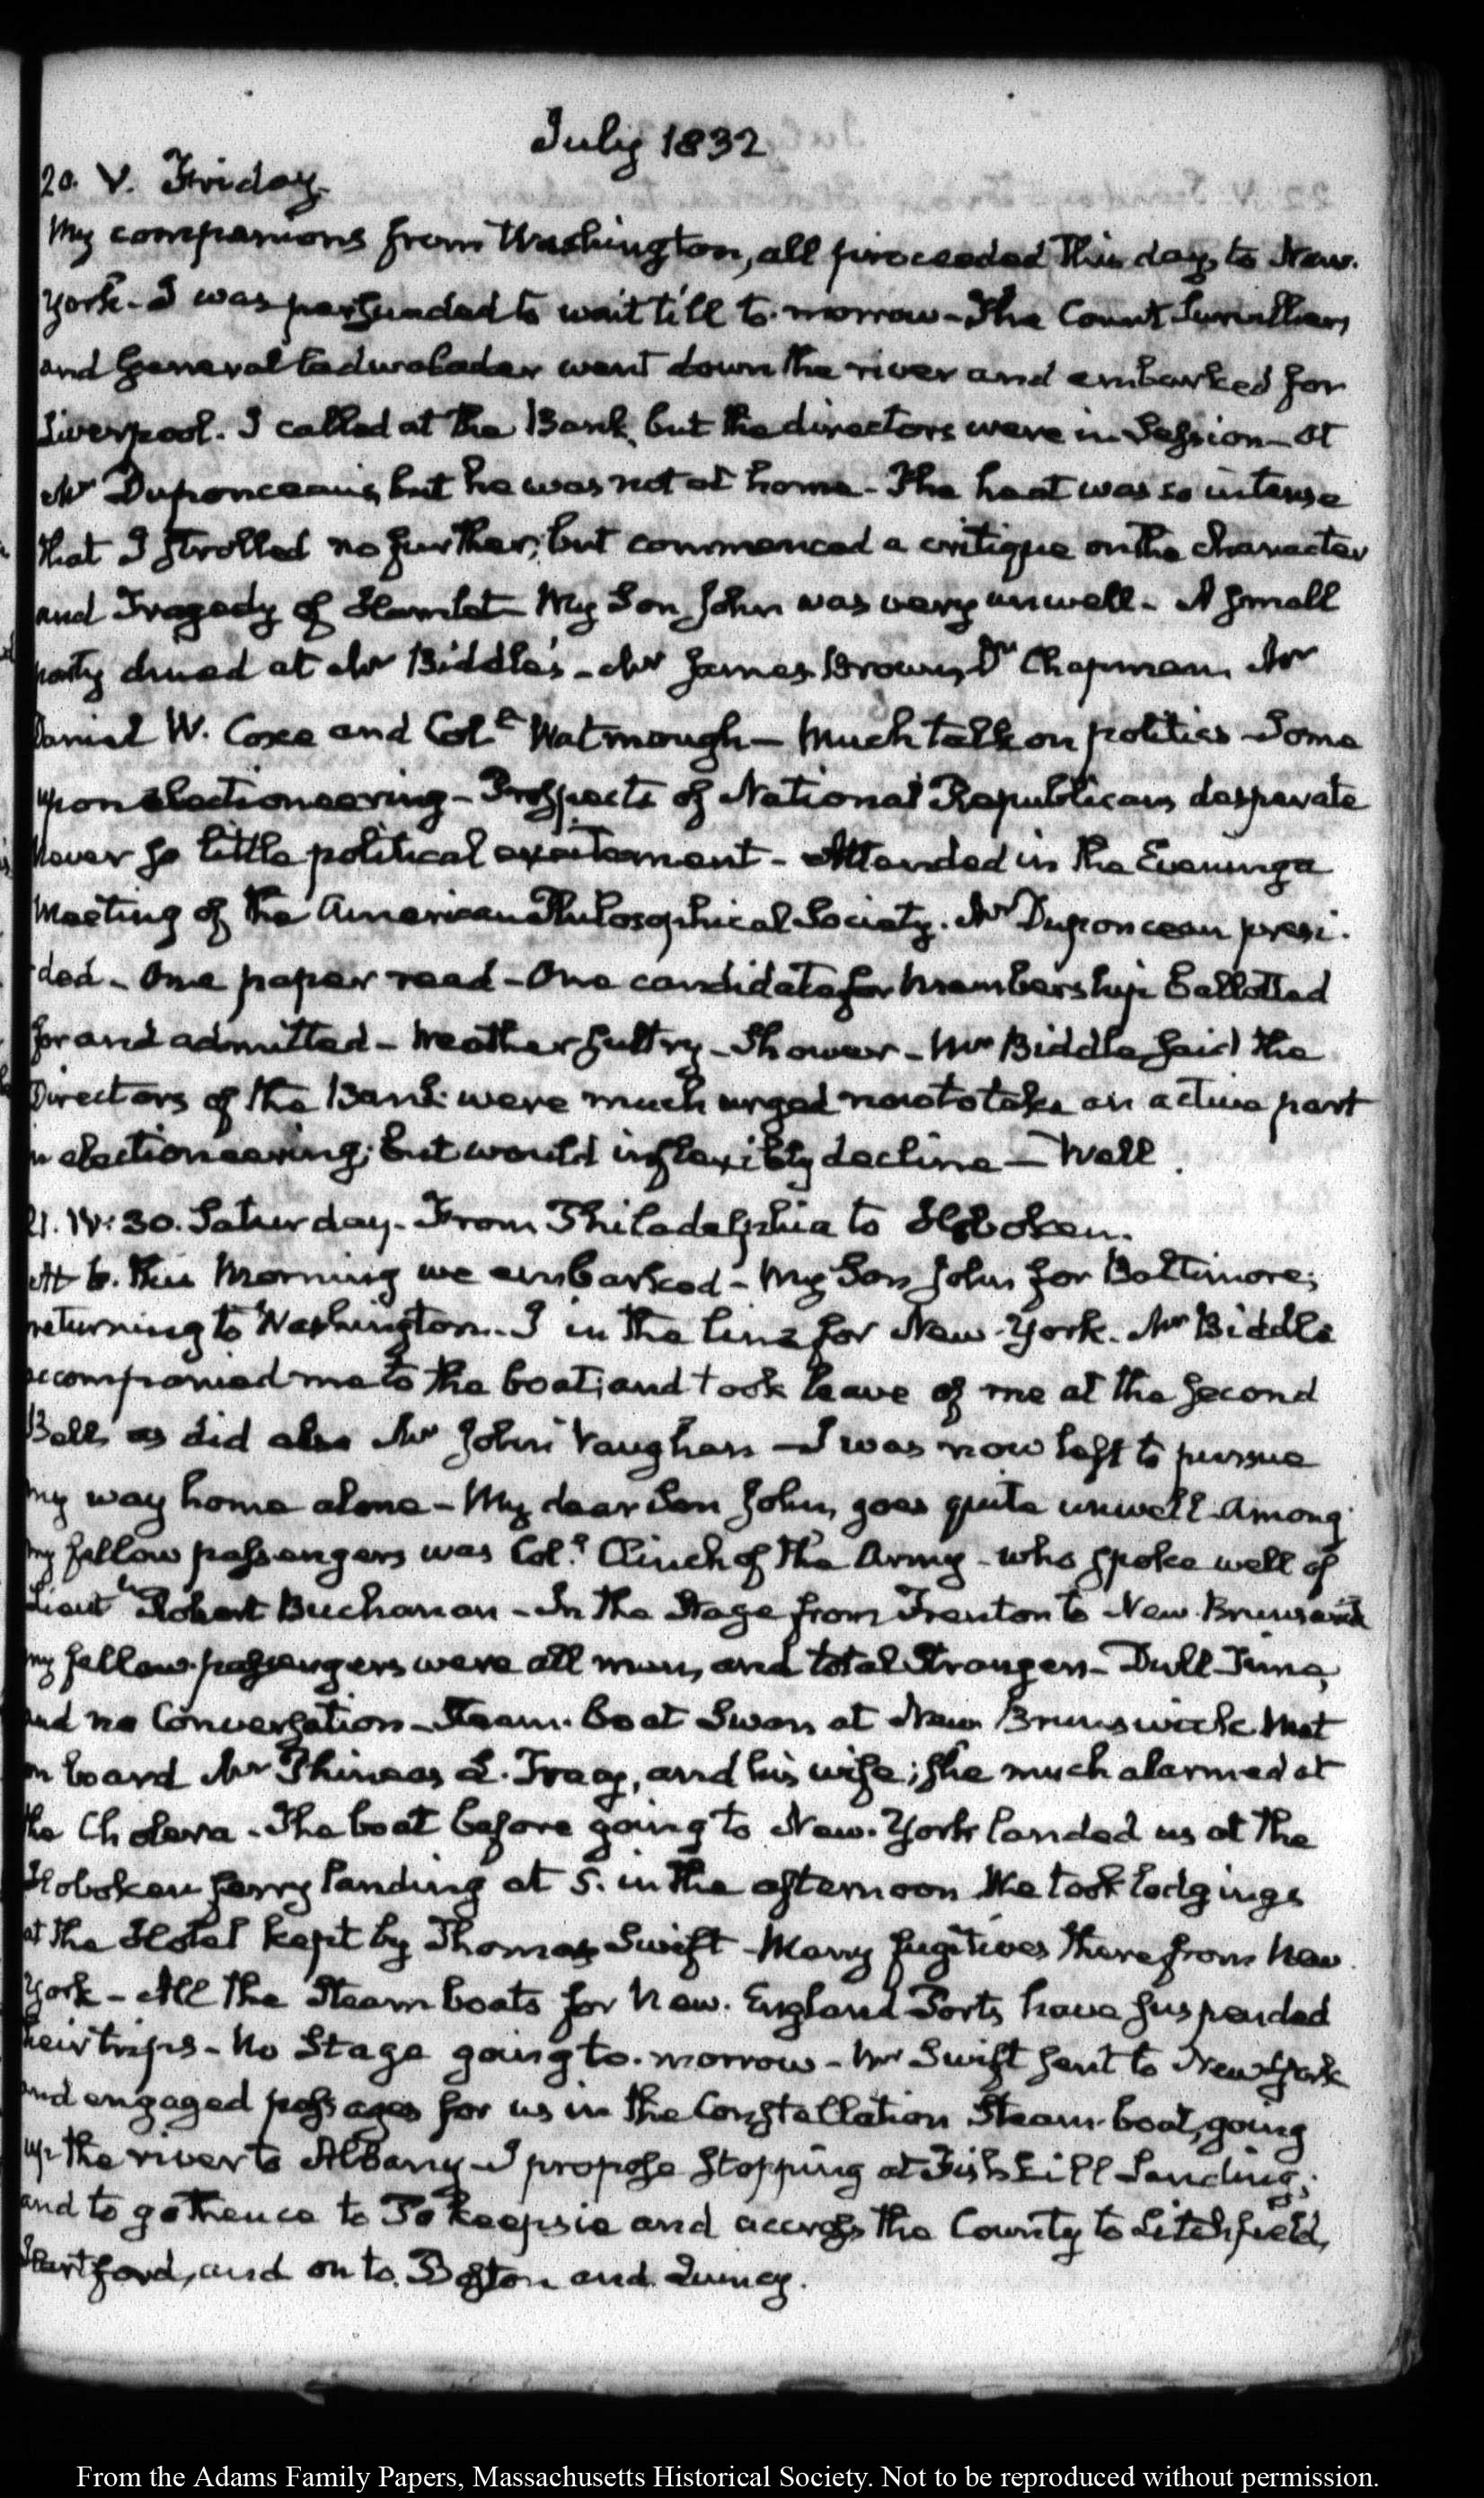 July 1832
20. V. Friday.
My companions from Washington, all proceeded this day, to New-
York - I was persuaded to wait till to-morrow - The Count Survilliers
and General Cadwalader went down the river and embarked for
Liverpool. I called at the Bank, but the directors were in Session - at
Mr Duponceau's, but he was not at home - The heat was so intense
that I strolled no further; but commenced a critique on the character
and Tragedy of Hamlet - My Son John was very unwell - A small
party dined at Mr Biddle's - Mr James Brown, Dr Chapman, Mr
Daniel W. Coxe and Coll Watmough - Much talk on politics - Some
upon electioneering - Prospects of National Republicans desperate
Never so little political excitement - Attended in the Evening a
Meeting of the American Philosophical Society. Mr Duponceau presi-
ded - One paper read - One candidate for membership ballotted
for and admitted - Weather sultry - Shower - Mr Biddle said the
Directors of the Bank were much urged now to take an active part
in electioneering; but would inflexibly decline - Well.
21. IV:30. Saturday - From Philadelphia to Hoboken.
At 6. this Morning we embarked - My Son John for Baltimore;
returning to Washington. I in the line for New-York. Mr Biddle
accompanied me to the boat; and took leave of me at the second
Bell, as did also Mr John Vaughan - I was now left to pursue
my way home alone - My dear Son John, goes quite unwell. Among
my fellow passengers was Coll Clinch of the Army - who spoke well of
Lieutt Robert Buchanan - In the Stage from Trenton to New-Brunswick
my fellow-passengers were all men, and total Strangers - Dull Time,
and no Conversation - Steam-boat Swan at New Brunswick. Met
on board Mr Phineas L. Tracy, and his wife; she much alarmed at
the Cholera - The boat before going to New-York landed us at the
Hoboken ferry landing at 5. in the afternoon. We took lodgings
at the Hotel kept by Thomas Swift - Many fugitives there from New
York - All the Steam boats for New-England Ports have suspended
their trips - No Stage going to-morrow - Mr Swift sent to New York
and engaged passages for us in the Constellation Steam-boat, going
up the river to Albany - I propose stopping at Fishkill Landing;
and to go thence to Pokeepsie and accross the County to Litchfield,
Hartford, and on to Boston and Quincy.
From the Adams Family Papers, Massachusetts Historical Society. Not to be reproduced without permission.